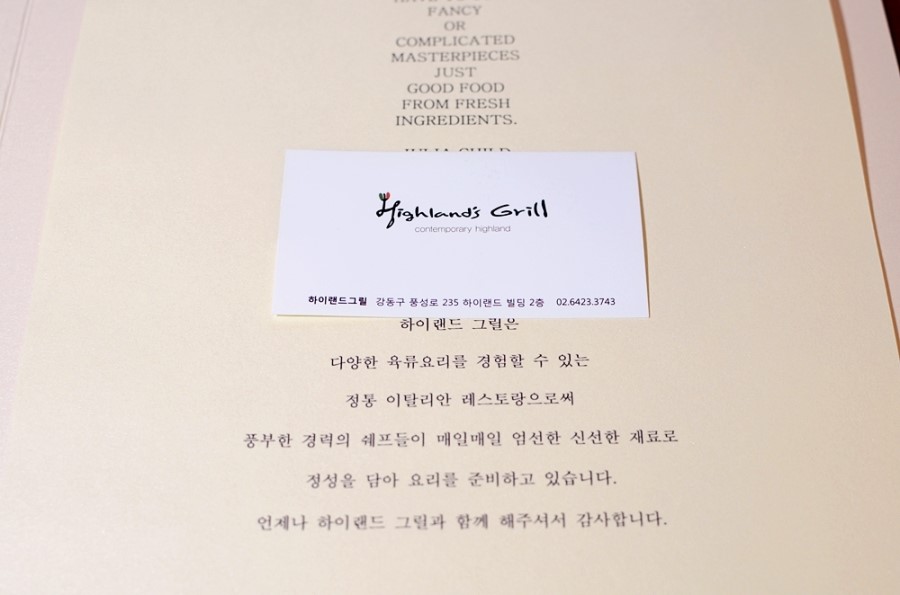 FANCY
OR
COMPLICATED
MASTERPIECES
JUST
GOOD FOOD
FROM FRESH
INGREDIENTS.
JULIA CHILD
Highland's Grill
contemporary highland
하이랜드그릴 강동구 풍성로 235 하이랜드 빌딩 2층 02.6423.3743
하이랜드 그릴은
다양한 육류요리를 경험할 수 있는
정통 이탈리안 레스토랑으로써
풍부한 경력의 쉐프들이 매일매일 엄선한 신선한 재료로
정성을 담아 요리를 준비하고 있습니다.
언제나 하이랜드 그릴과 함께 해주셔서 감사합니다.